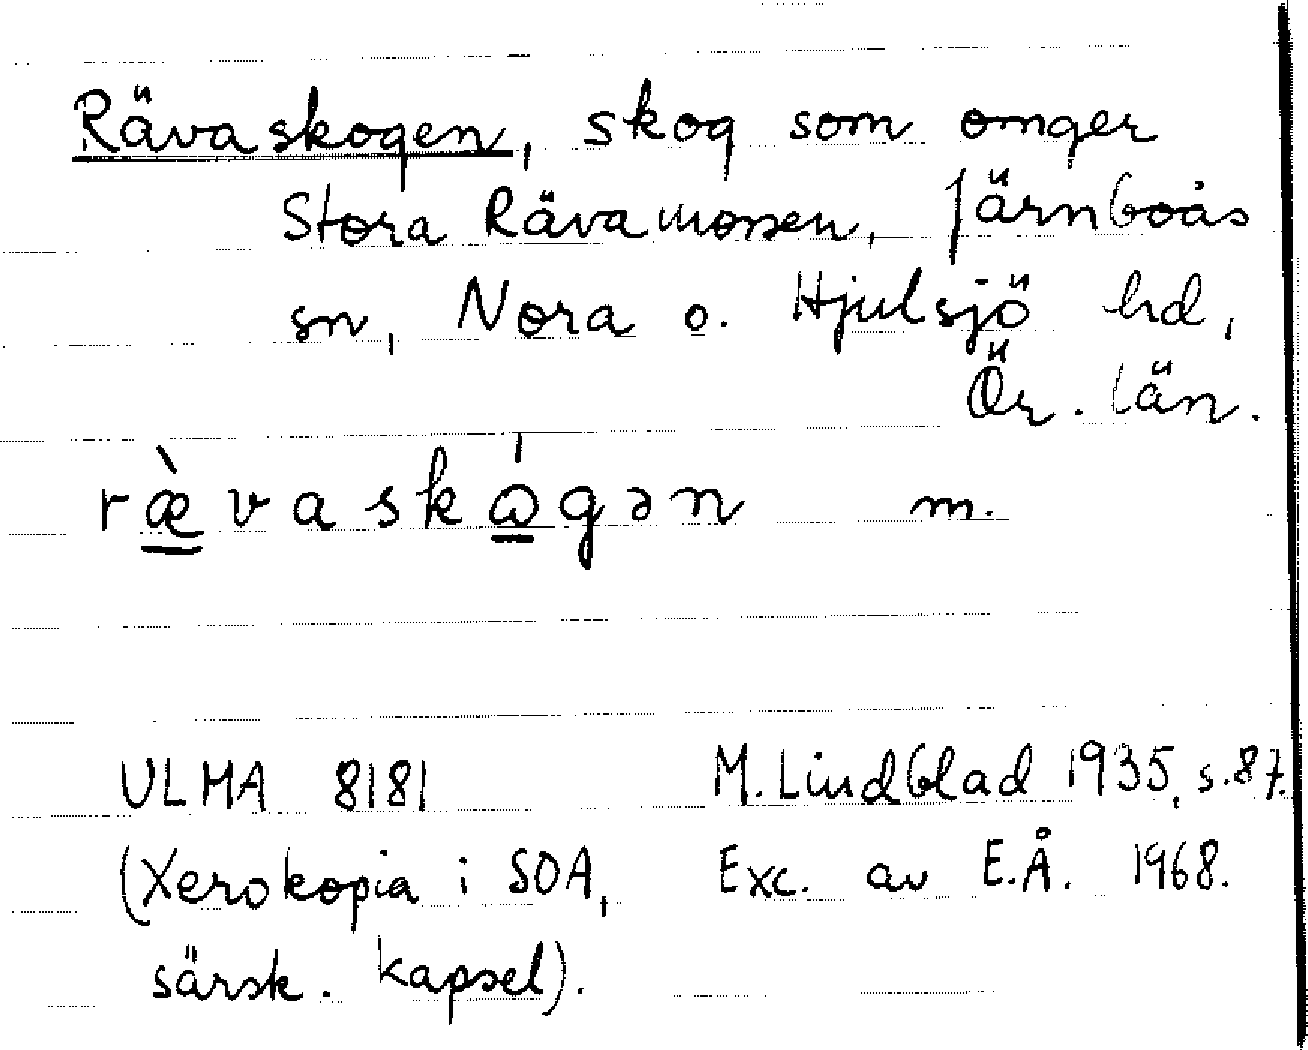 Rävaskogen, skog som omger
Stora Rävamossen, Järnboås
sn, Nora o. Hjulsjö hd,
Ör. län.
ræ̲̀vaskώ̲gən m.
ULMA 8181 M. Lindblad 1935, s. 87.
(Xerokopia i SOA, Exc. av E.Å. 1968.
särsk. kapsel).